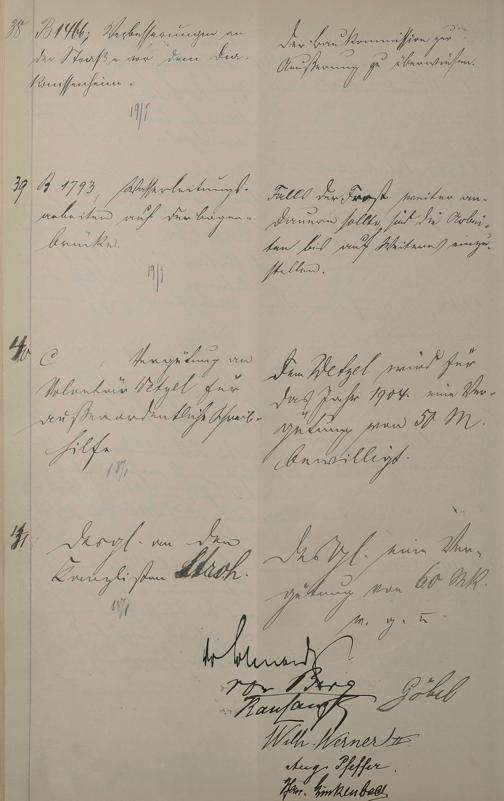 38 B 1466; Verbesserungen an
der Straße vor dem Dia-
konissenheim.
19/1
Der Baukommission zur
Äußerung zu überweisen.
39 B 1793, Wasserleitungs-
arbeiten auf der Bogen-
brücke.
19/1
Falls der Frost weiter an-
dauern sollte, sind die Arbei-
ten bis auf Weiteres einzu-
stellen.
40 C , Vergütung an
Volontär Wetzel für
außerordentliche Schreib-
hilfe
18/1
Dem Wetzel wird für
das Jahr 1904 eine Ver-
gütung von 50 M.
bewilligt.
41 Desgl. an den
Kanzlisten Stroh.
18/1
Desgl. eine Ver-
gütung von 60 Mk.
v. g. u.
vor Berg
Göbel
Wilh. Werner II
Aug. Pfeffer.